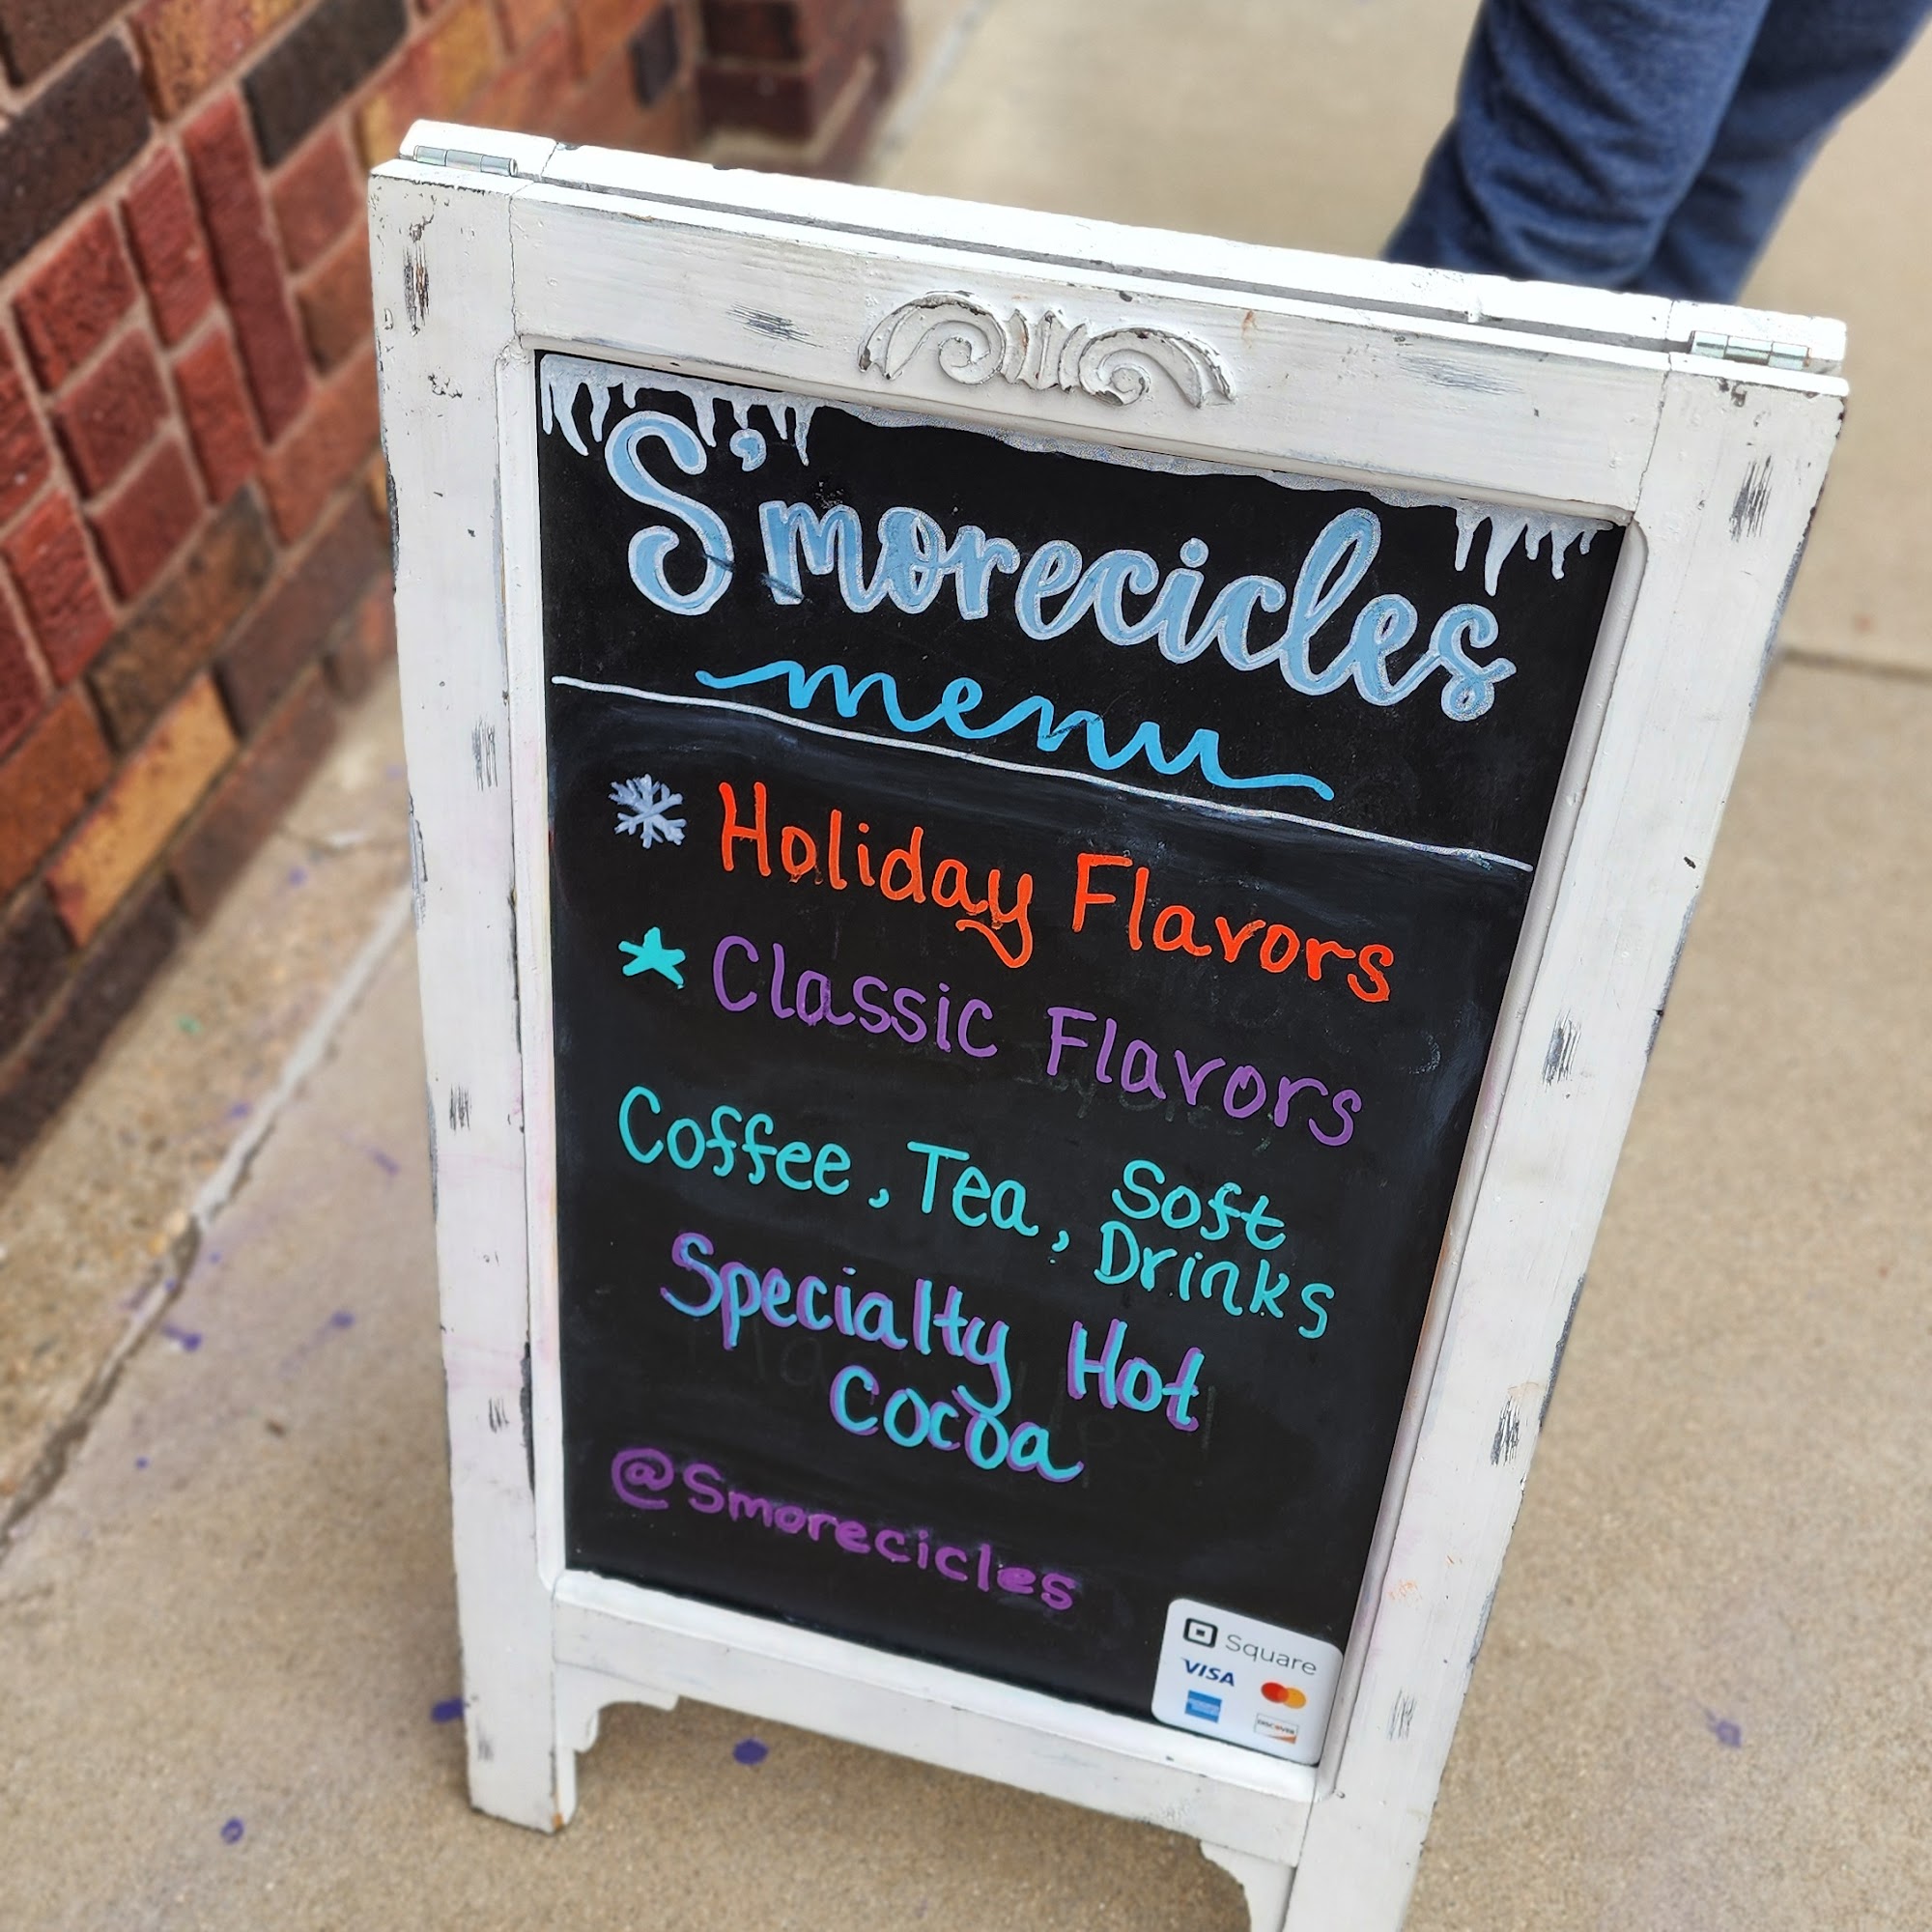 S'morecicles
menu
Holiday Flavors
Classic Flavors
Coffee, Tea, Soft
Drinks
Specialty Hot
Cocoa
@Smorecicles
Square
VISA
DISCOVER